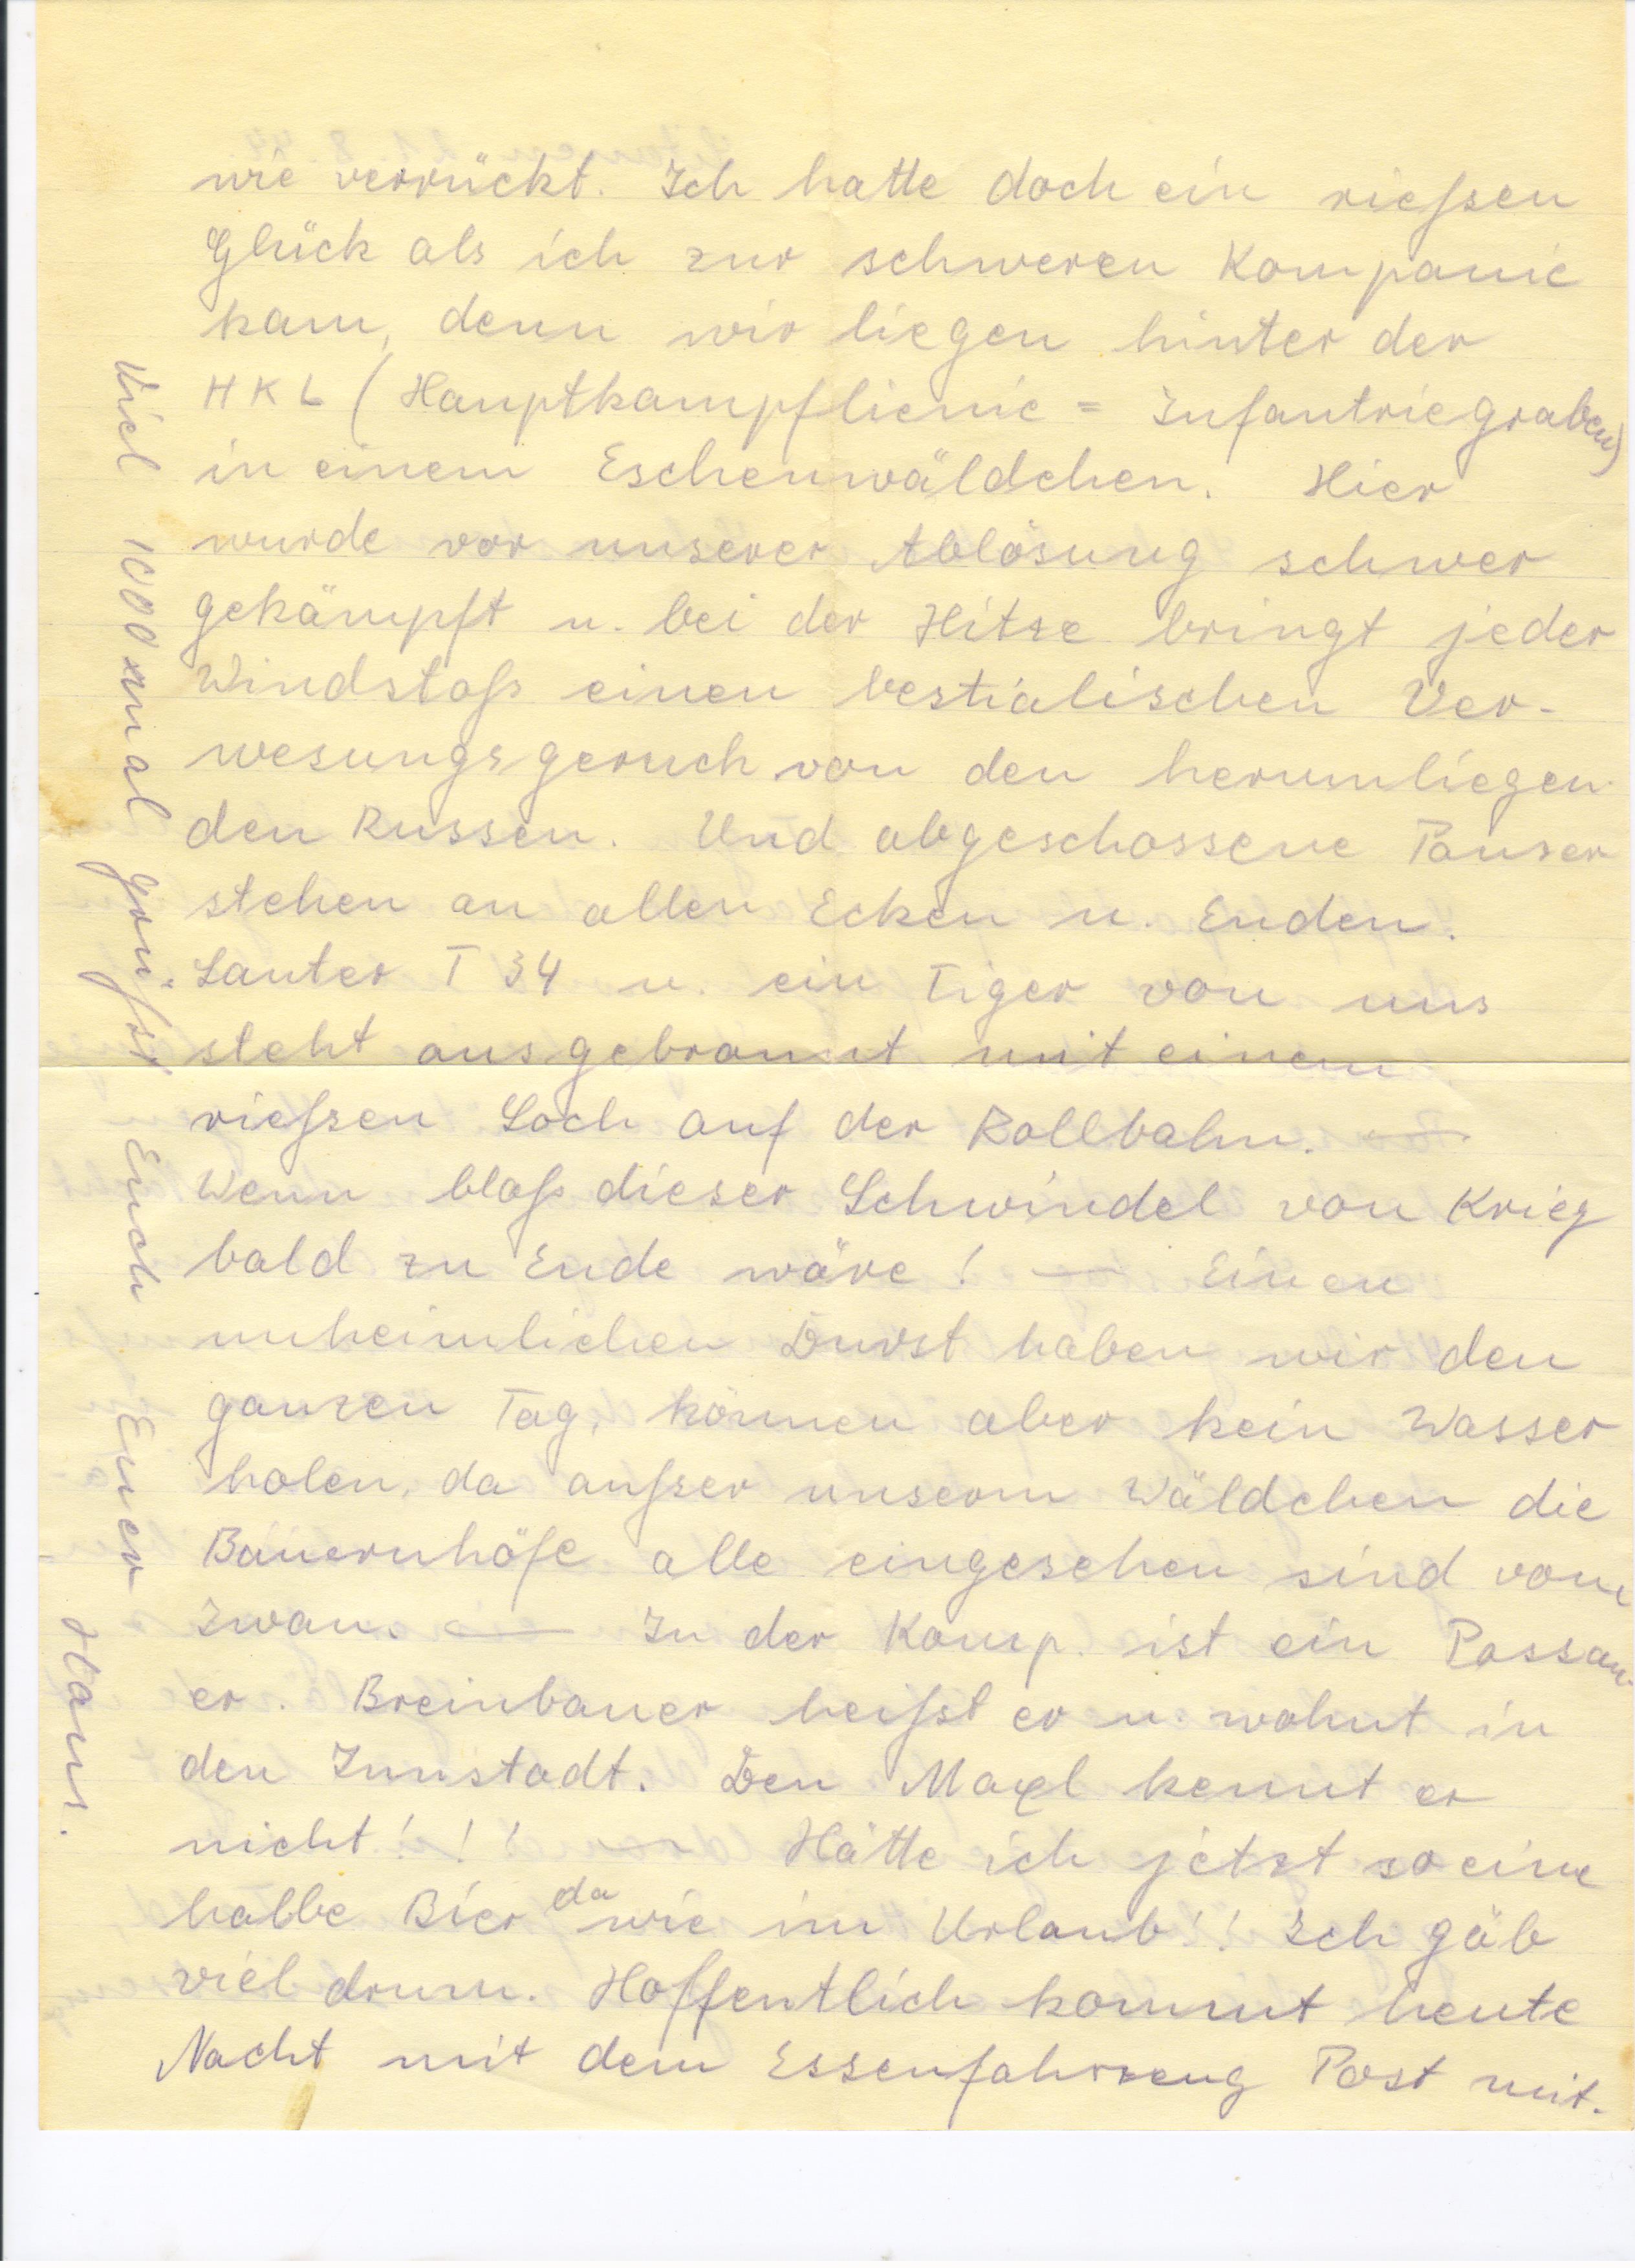 wie verrückt. Ich hatte doch ein rießsen
Glück als ich zur schweren Kompanie
kam, denn wir liegen hinter der
HKL (Hauptkampflienie = Infantriegraben)
in einem Eschenwäldchen. Hier
wurde vor unserer Ablösung schwer
gekämpft u. bei der Hitze bringt jeder
Windstoß einen bestialischen Ver-
wesungsgeruch von den herumliegen-
den Russen. Und abgeschossene Panzer
stehen an allen Ecken u. Enden.
Lauter T 34 u. ein Tiger von uns
steht ausgebrannt mit einem
rießsen Loch auf der Rollbahn. —
Wenn bloß dieser Schwindel von Krieg
bald zu Ende wäre! — Einen
unheimlichen Durst haben wir den
ganzen Tag, können aber kein Wasser
holen, da außer unserm Wäldchen die
Bauernhöfe alle eingesehen sind vom
Iwan. — In der Komp. ist ein Passau-
er. Breinbauer heißt er u. wohnt in
den Innstadt. Den Maxl kennt er
nicht!!! — Hätte ich jetzt so eine
halbe Bier da wie im Urlaub!! Ich gäb
viel drum. Hoffentlich kommt heute
Nacht mit dem Essenfahrzeug Post mit.
Viel 1000 x mal grüßt Euch Euer Hans.